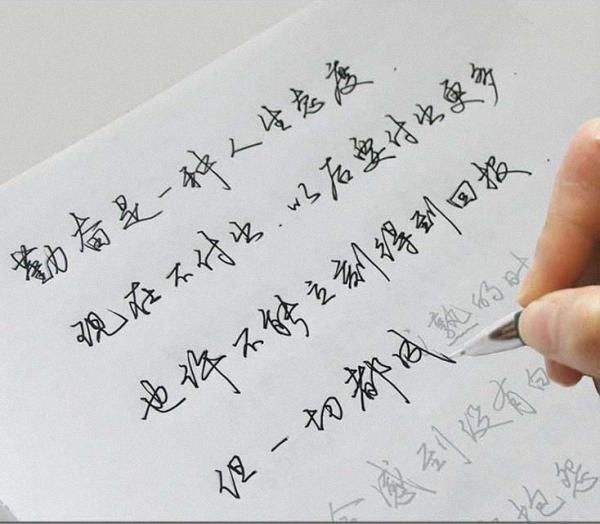 勤奋是一种人生态度.
现在不付出.以后要付出更多.
也许不能立刻得到回报.
但一切都成熟的时
会感到没有白
抱怨